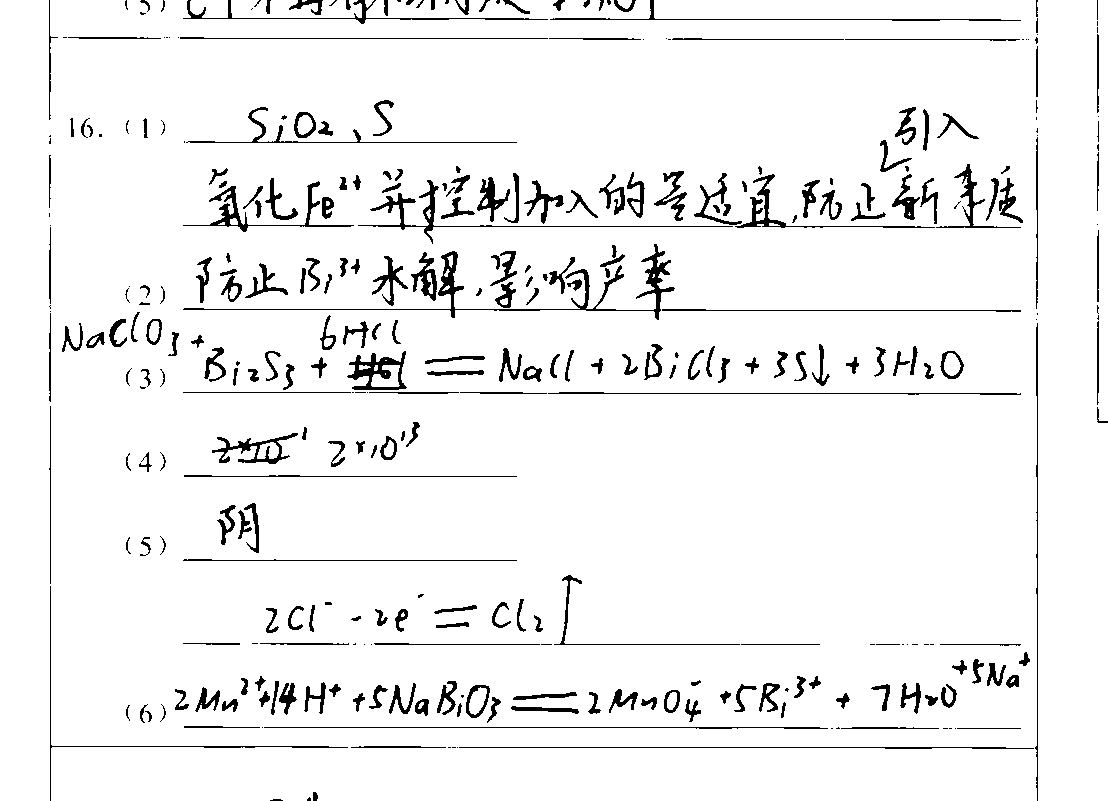 (5)
16. (1) SiO₂、S
引入
氧化Fe²⁺并控制加入的量适宜,防止新杂质
(2) 防止Bi³⁺水解,影响产率
NaClO₃ + 6HCl
(3) Bi₂S₃ + = NaCl + 2BiCl₃ + 3S↓ + 3H₂O
(4) 2×10¹³
(5) 阴
2Cl⁻ - 2e⁻ = Cl₂↑
(6) 2Mn²⁺+14H⁺+5NaBiO₃=2MnO₄⁻+5Bi³⁺+7H₂O+5Na⁺